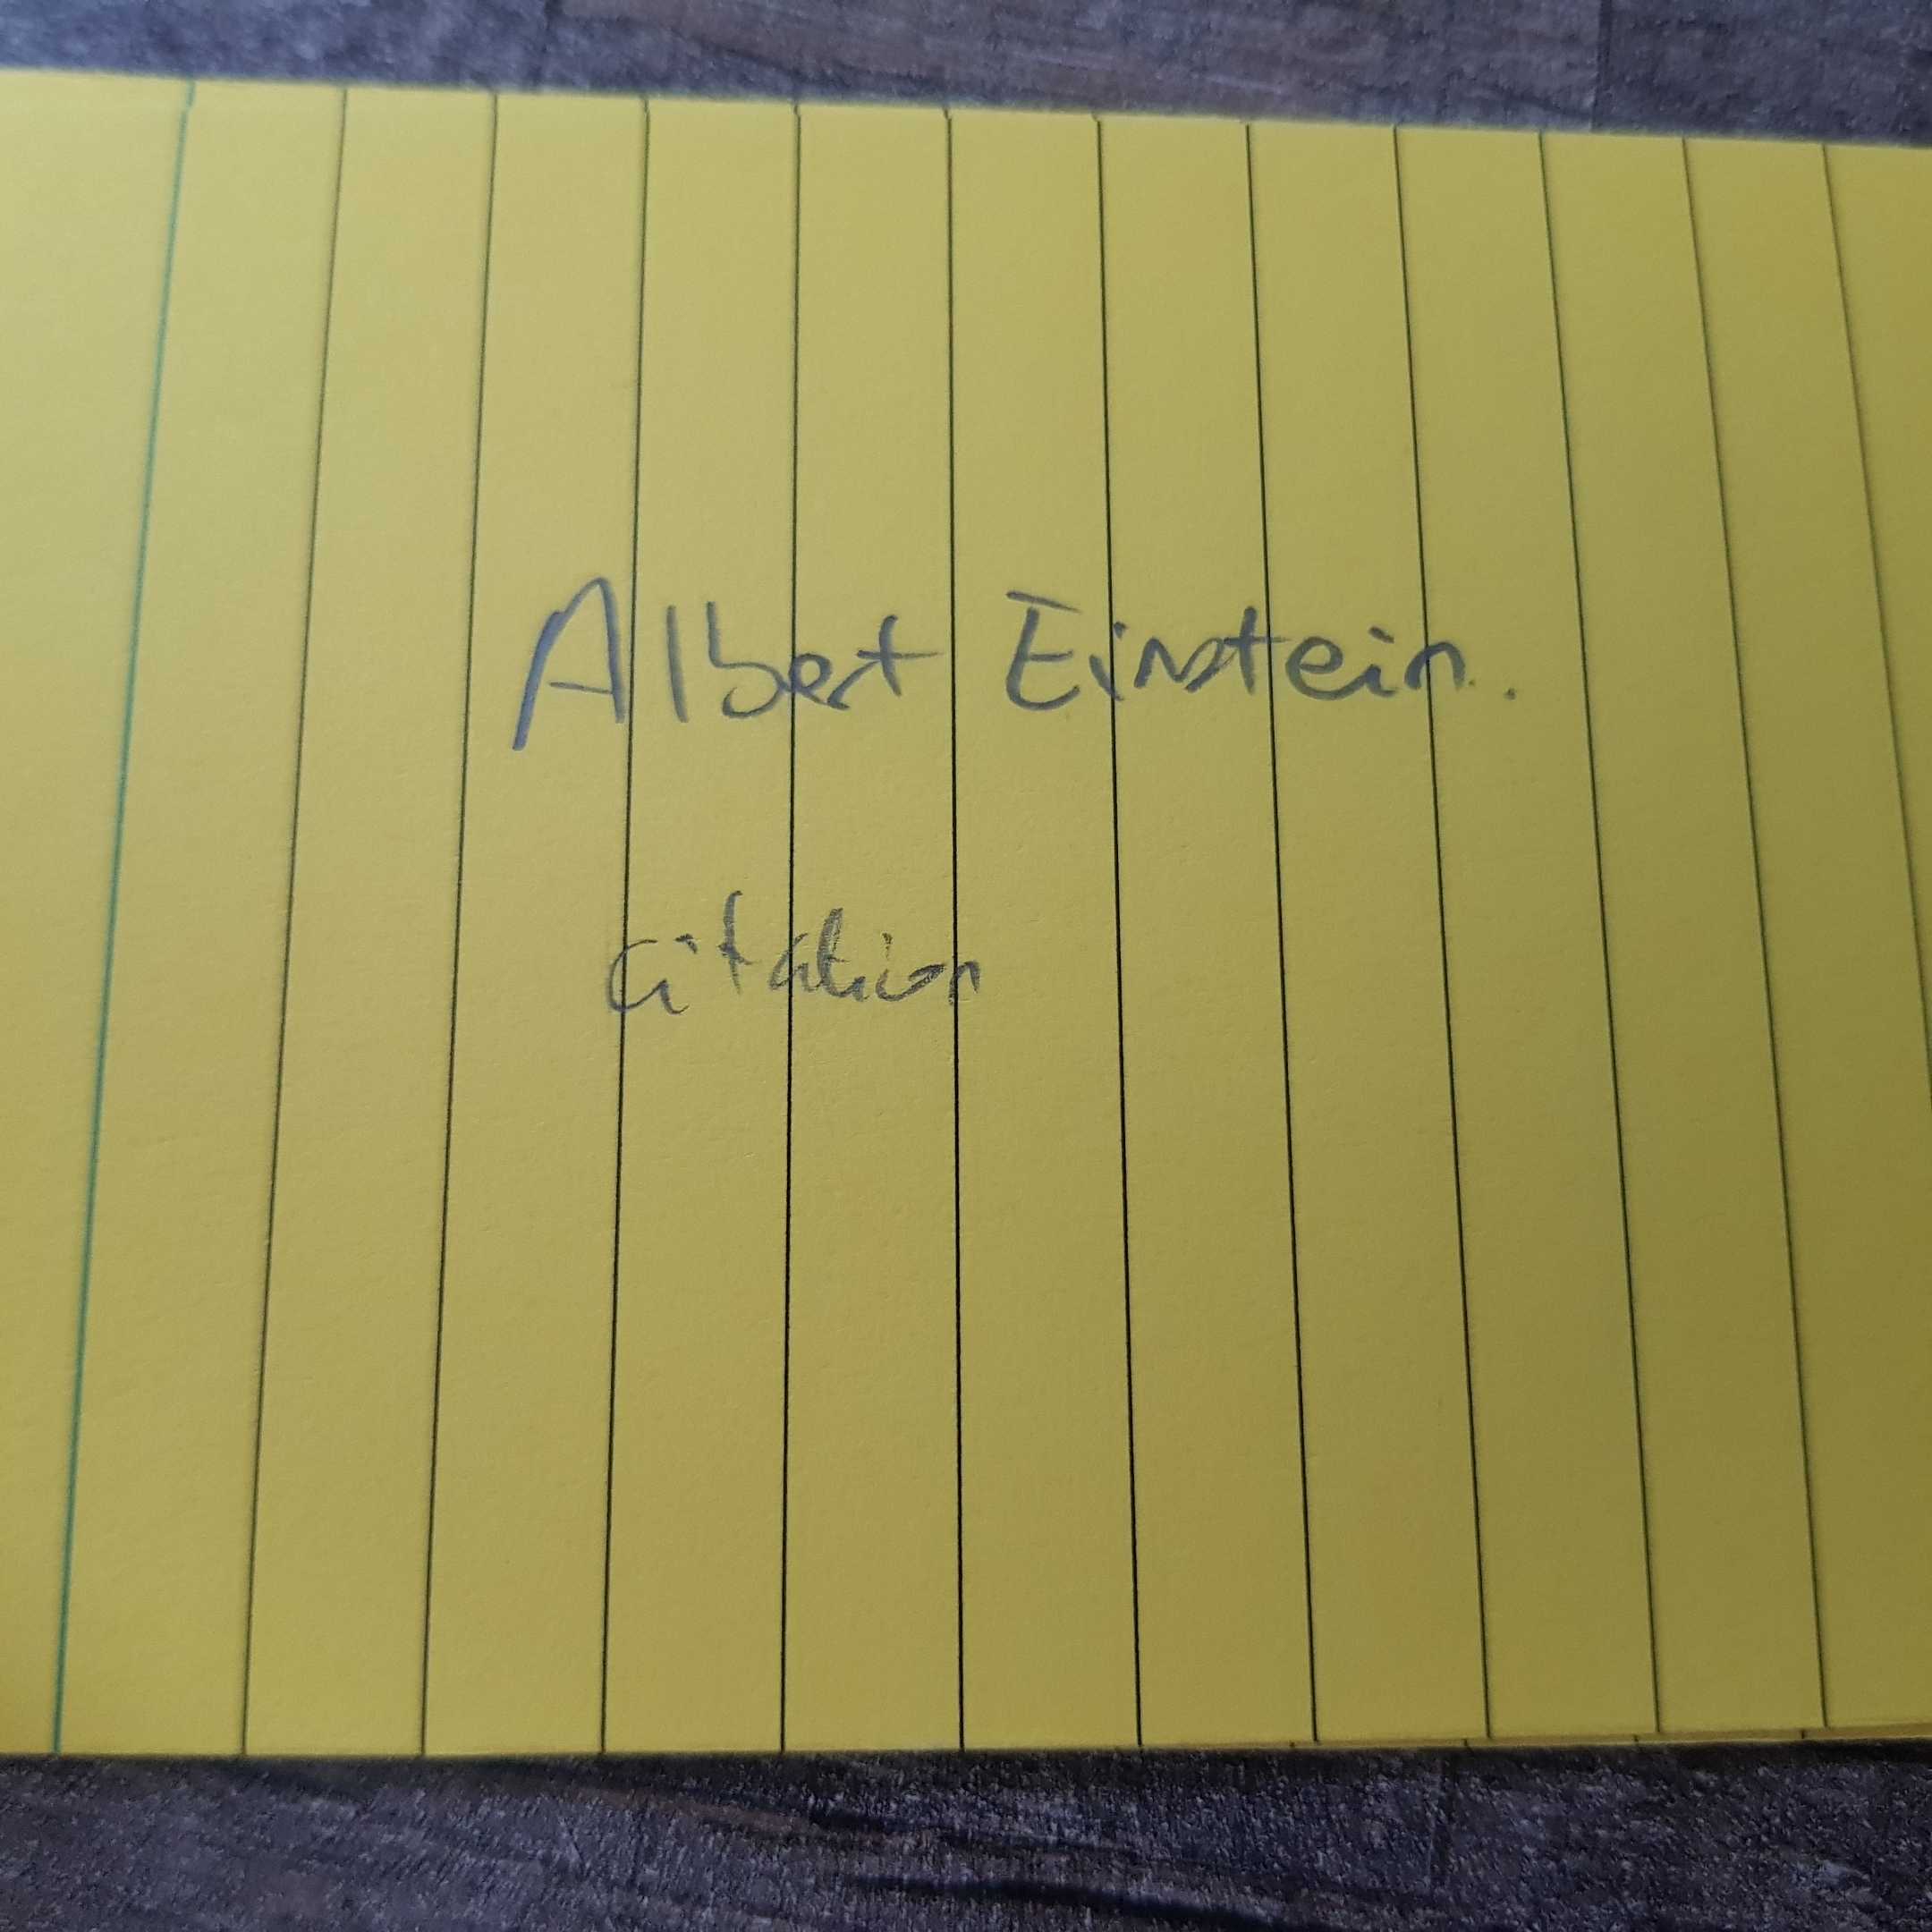 Albert Einstein.
citation